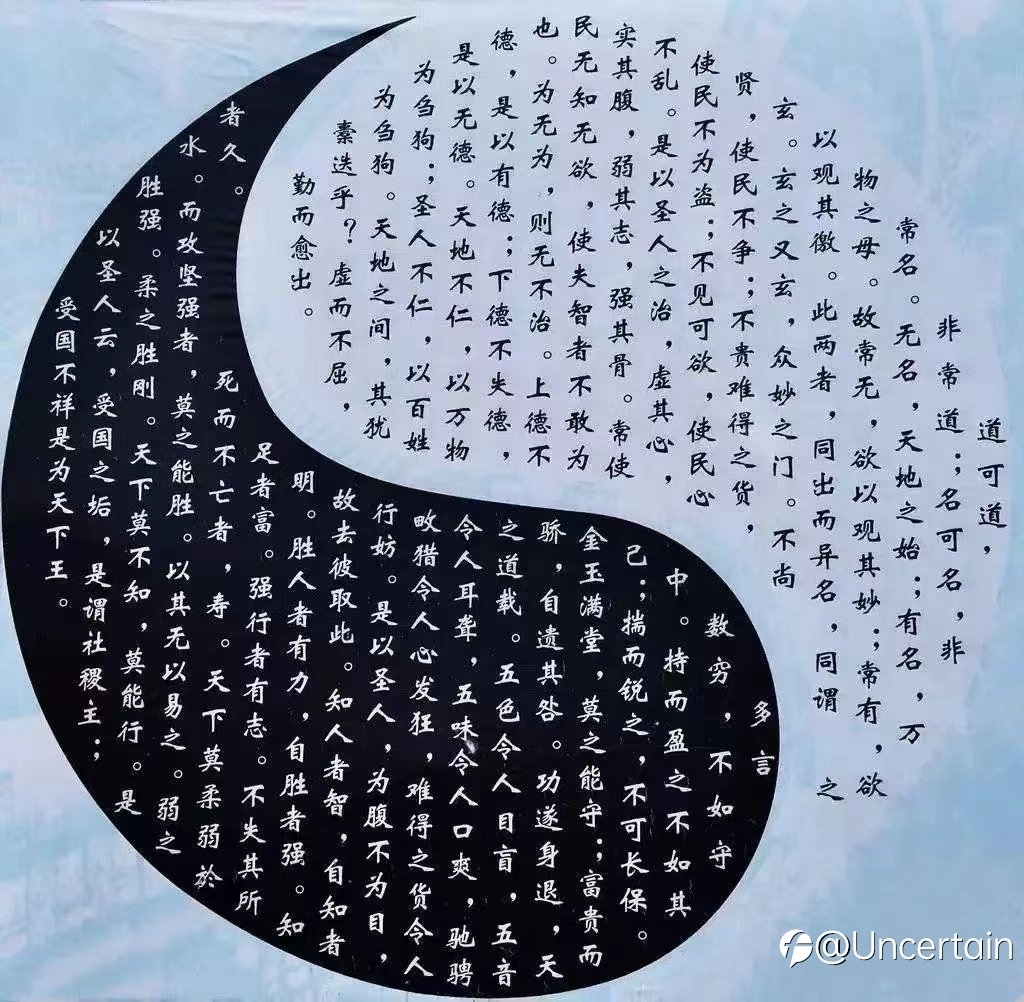 道可道，
非常道；名可名，非
常名。无名，天地之始；有名，万
物之母。故常无，欲以观其妙；常有，欲
以观其徼。此两者，同出而异名，同谓之
玄。玄之又玄，众妙之门。不尚
贤，使民不争；不贵难得之货，
使民不为盗；不见可欲，使民心
不乱。是以圣人之治，虚其心，
实其腹，弱其志，强其骨。常使
民无知无欲，使夫智者不敢为
也。为无为，则无不治。上德不
德，是以有德；下德不失德，
是以无德。天地不仁，以万物
为刍狗；圣人不仁，以百姓
为刍狗。天地之间，其犹
橐迭乎？虚而不屈，
勤而愈出。
多言
数穷，不如守
中。持而盈之不如其
己；揣而锐之，不可长保。
金玉满堂，莫之能守；富贵而
骄，自遗其咎。功遂身退，天
之道载。五色令人目盲，五音
令人耳聋，五味令人口爽，驰骋
畋猎令人心发狂，难得之货令人
行妨。是以圣人，为腹不为目，
故去彼取此。知人者智，自知者
明。胜人者有力，自胜者强。知
足者富。强行者有志。不失其所
者久。死而不亡者，寿。天下莫柔弱於
水。而攻坚强者，莫之能胜。以其无以易之。弱之
胜强。柔之胜刚。天下莫不知，莫能行。是
以圣人云，受国之垢，是谓社稷主；
受国不祥是为天下王。
@Uncertain